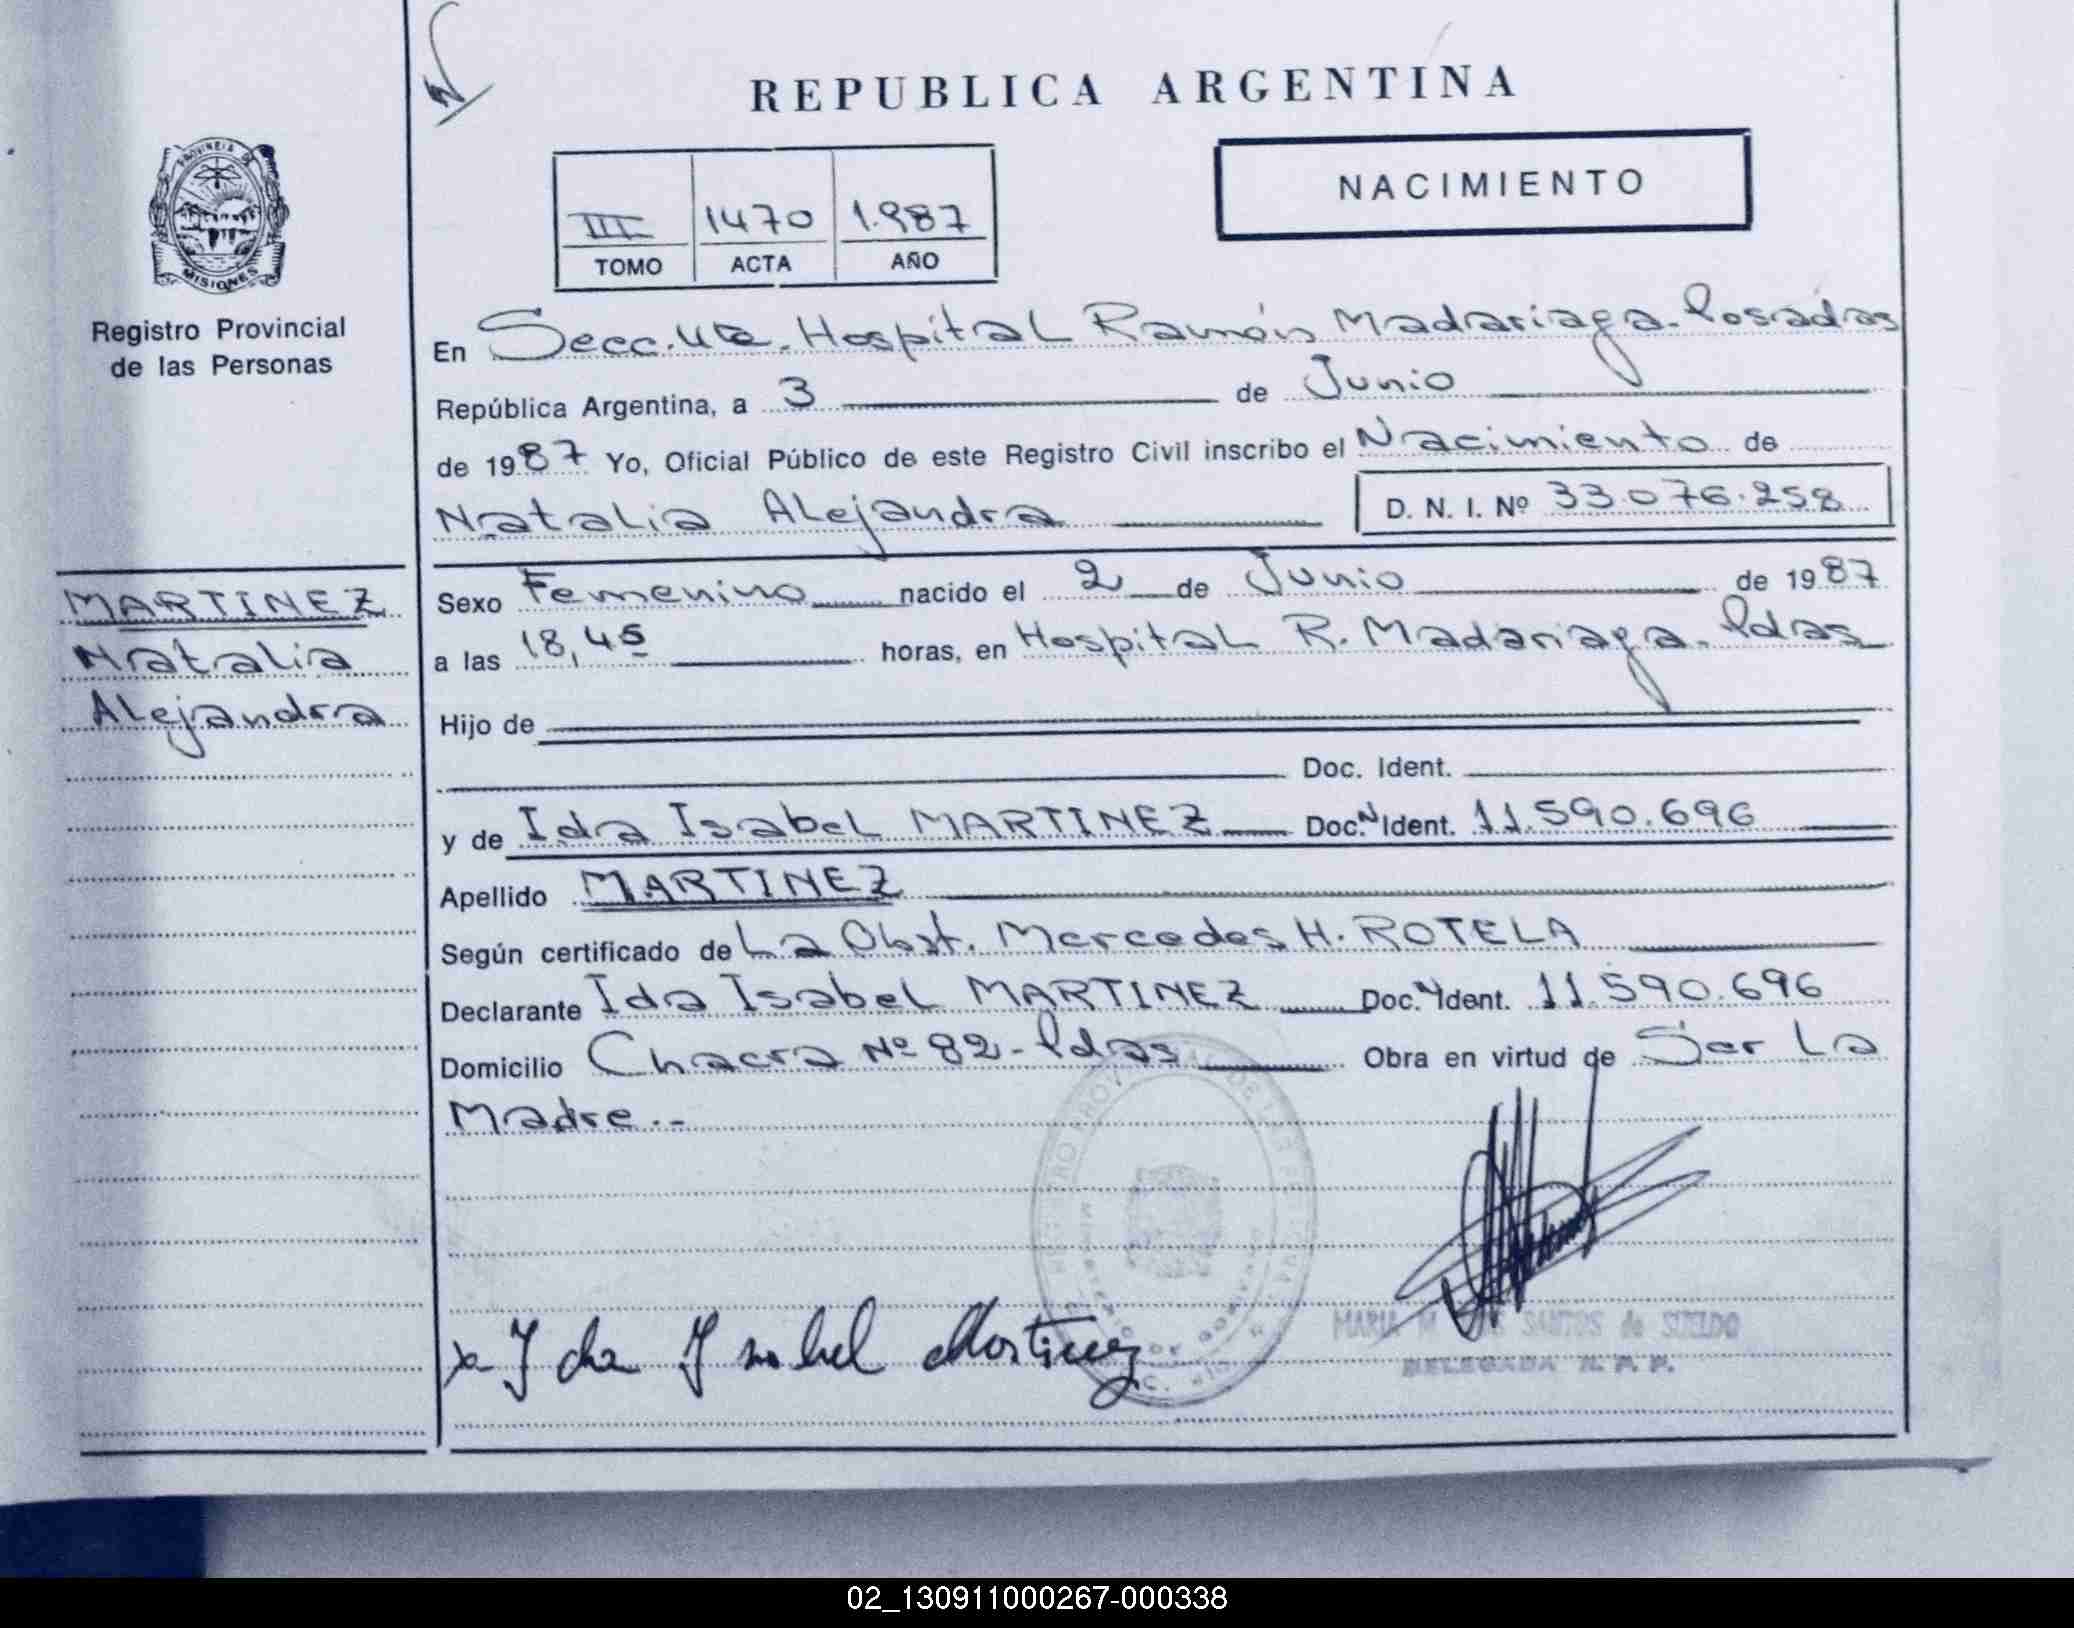 REPUBLICA ARGENTINA
PROVINCIA DE
MISIONES
Registro Provincial
de las Personas
III 1470 1.987
TOMO ACTA AÑO
NACIMIENTO
En Secc. 4ta. Hospital Ramón Madariaga. Posadas
República Argentina, a 3 de Junio
de 1987 Yo, Oficial Público de este Registro Civil inscribo el Nacimiento de
Natalia Alejandra D. N. I. Nº 33.076.258
MARTINEZ
Natalia
Alejandra
Sexo Femenino nacido el 2 de Junio de 1987
a las 18,45 horas, en Hospital R. Madariaga. Pdas
Hijo de
Doc. Ident.
y de Ida Isabel MARTINEZ Doc. N Ident. 11.590.696
Apellido MARTINEZ
Según certificado de La Obst. Mercedes H. ROTELA
Declarante Ida Isabel MARTINEZ Doc. N Ident. 11.590.696
Domicilio Chacra Nº 82 - Pdas Obra en virtud de Ser La
Madre.-
x Ida Isabel Martinez
MARIA SANTOS de SUELDO
DELEGADA R. P. P.
02_130911000267-000338